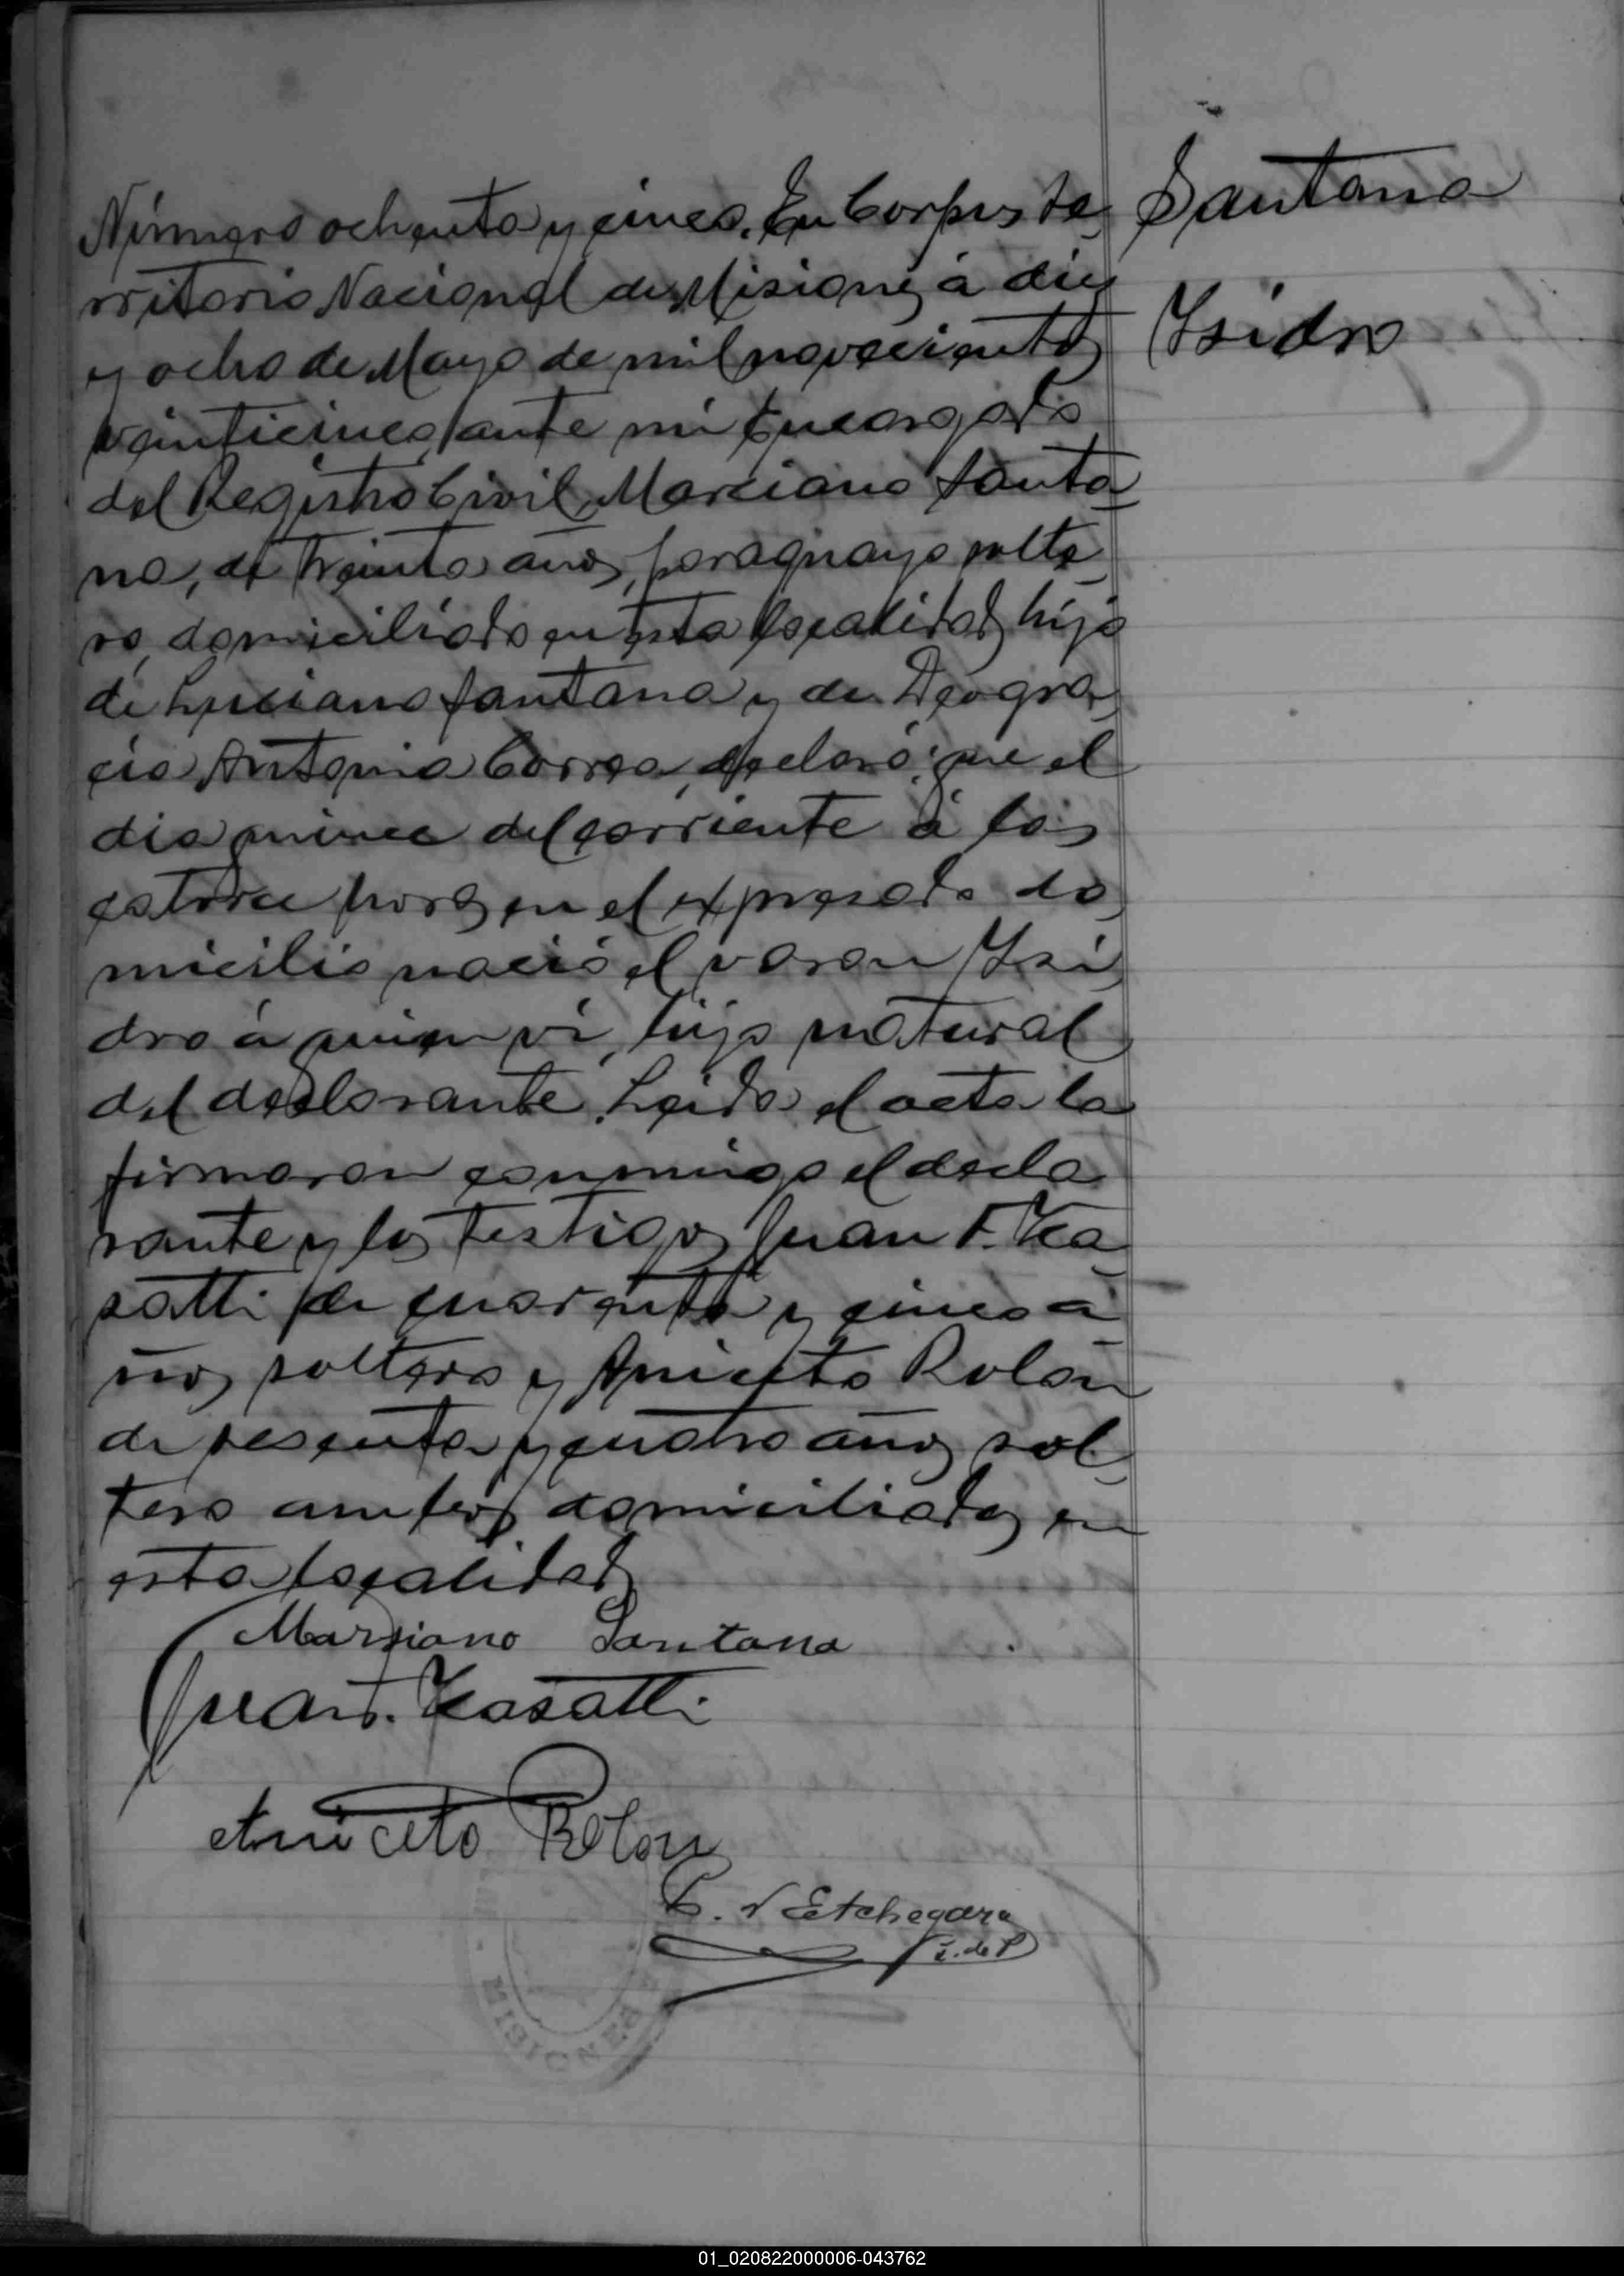 Número ochenta y cinco. En Corpus te
Santana
rritorio Nacional de Misiones á diez
Isidro
y ocho de Mayo de mil novecientos
veinticinco, ante mi Encargado
del Registro Civil, Marciano Santa
na, de treinta años, paraguayo solte
ro, domiciliado en esta localidad, hijo
de Luciano Santana y de Deogra
cia Antonia Correa, declaró: que el
dia quince del corriente á las
catorce horas en el expresado do
micilio nació el varon Isi
dro á quien vi, hijo natural
del declarante. Leida el acta la
firmaron conmigo el decla
rante y los testigos Juan F. Ka
satti de cuarenta y cinco a
ños soltero y Aniceto Rolón
de sesenta y cuatro años sol
tero ambos domiciliados en
esta localidad
Marsiano Santana
Juan F. Kasatti
Aniceto Rolon
Etchegaray
MISIONES
01_020822000006-043762